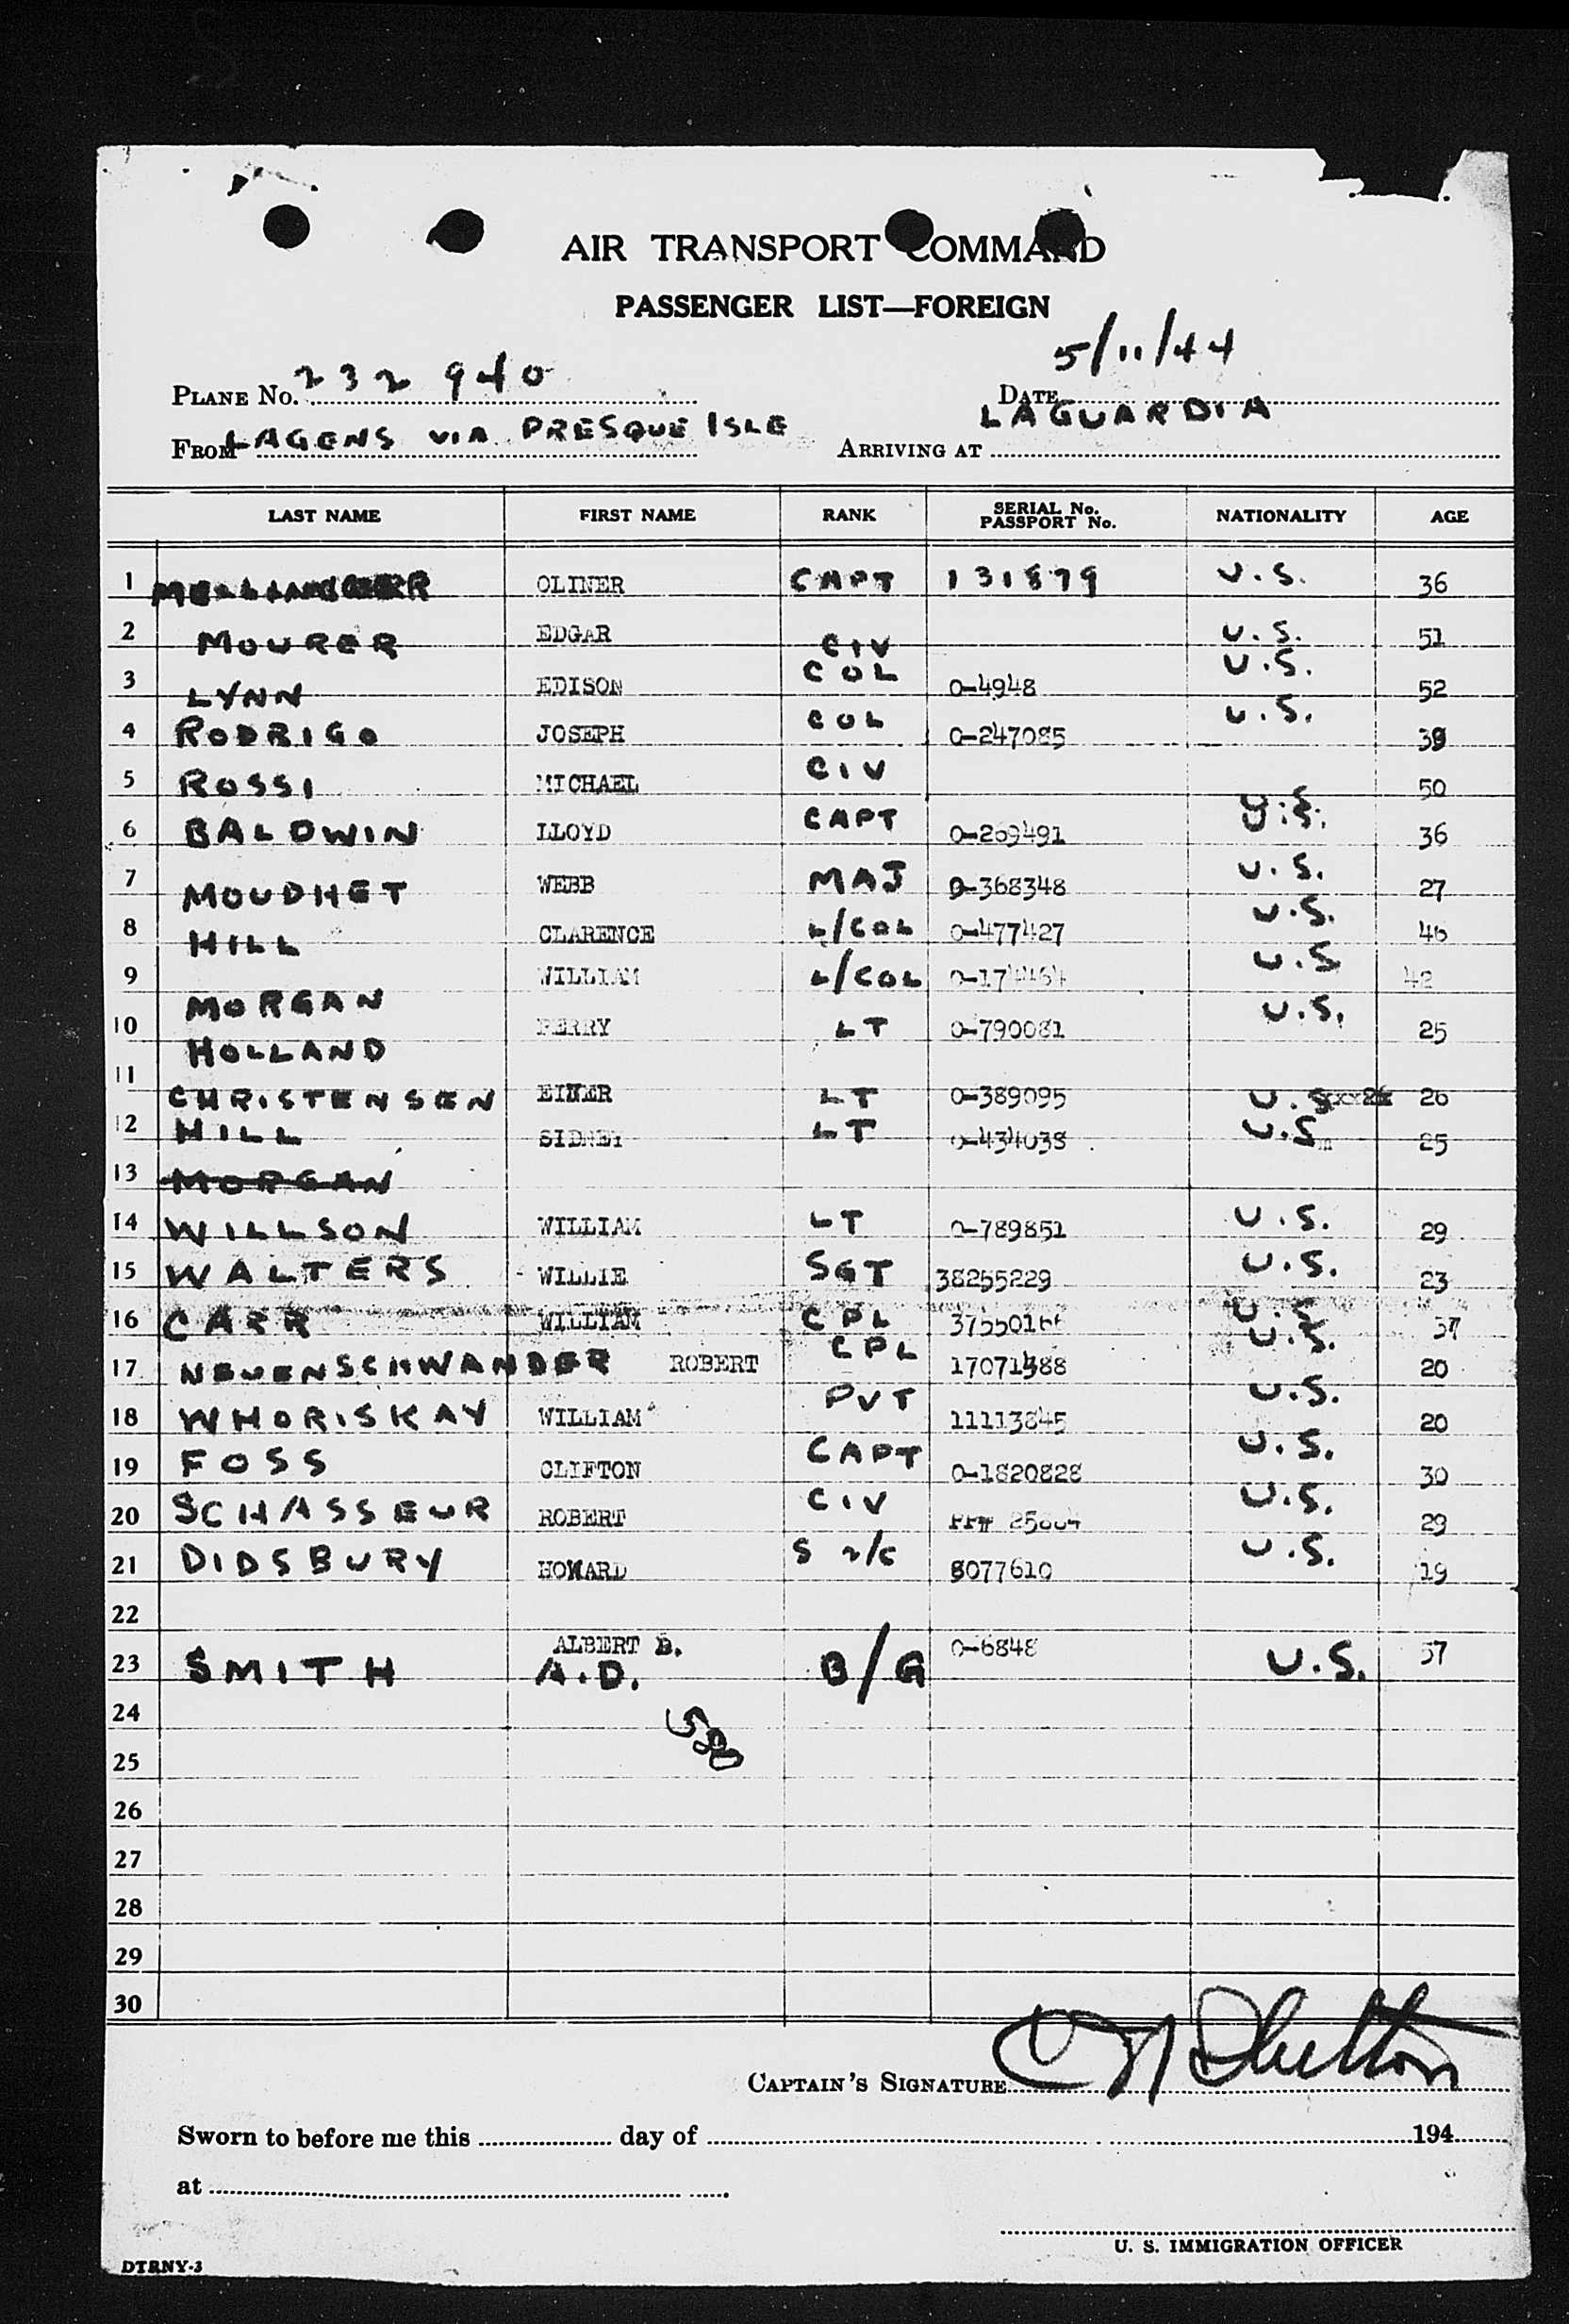 AIR TRANSPORT COMMAND
PASSENGER LIST—FOREIGN
PLANE No. 232 940 DATE 5/11/44
FROM LAGENS VIA PRESQUE ISLE ARRIVING AT LAGUARDIA
LAST NAME FIRST NAME RANK SERIAL No. PASSPORT No. NATIONALITY AGE
1 OLINER CAPT 131879 U.S. 36
2 MOURER EDGAR CIV U.S. 51
3 LYNN EDISON COL O-4948 U.S. 52
4 RODRIGO JOSEPH COL O-247085 U.S. 39
5 ROSSI MICHAEL CIV U.S. 50
6 BALDWIN LLOYD CAPT O-269491 U.S. 36
7 MOUDHET WEBB MAJ O-368348 U.S. 27
8 HILL CLARENCE L/COL O-477427 U.S. 46
9 MORGAN WILLIAM L/COL U.S 42
10 HOLLAND PERRY LT O-790081 U.S. 25
11 CHRISTENSEN EINER LT O-389095 U.S 26
12 HILL SIDNEY LT O-434038 U.S 25
13 MORGAN
14 WILLSON WILLIAM LT O-789851 U.S. 29
15 WALTERS WILLIE SGT 38255229 U.S. 23
16 CARR WILLIAM CPL U.S 37
17 NEUENSCHWANDER ROBERT CPL U.S. 20
18 WHORISKAY WILLIAM PVT 11113845 U.S. 20
19 FOSS CLIFTON CAPT O-1820828 U.S. 30
20 SCHASSEUR ROBERT CIV U.S. 29
21 DIDSBURY HOWARD S 2/C 8077610 U.S. 19
22
ALBERT D. O-6848 57
23 SMITH A.D. B/G U.S.
24
580
25
26
27
28
29
30
CAPTAIN'S SIGNATURE
Sworn to before me this day of 194
at
U. S. IMMIGRATION OFFICER
DTRNY-3